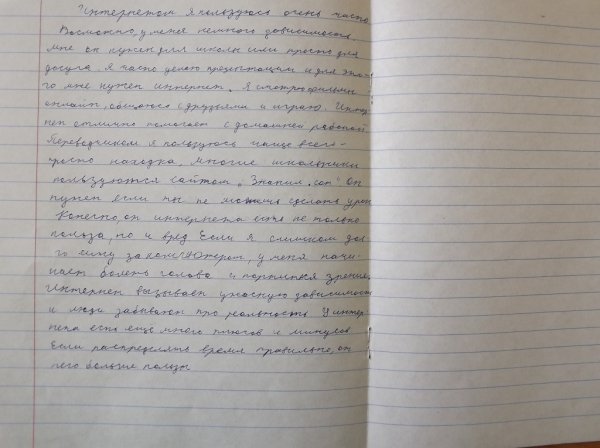 Интернетом я пользуюсь очень часто
Возможно, у меня немного зависимость.
Мне он нужен для школы или просто для
досуга. Я часто делаю презентации и для это-
го мне нужен интернет. Я смотрю фильмы
онлайн, общаюсь с друзьями и играю. Интер-
нет отлично помогает с домашней работой.
Переводчиком я пользуюсь чаще всего-
просто находка. Многие школьники
пользуются сайтом „Знания.com" Он
нужен если ты не можешь сделать урок
Конечно, от интернета есть не только
польза, но и вред Если я слишком дол-
го сижу за компьютером, у меня начи-
нает болеть голова и портится зрение.
Интернет вызывает ужасную зависимость
и люди забывают про реальность У интер
нета есть еще много плюсов и минусов.
Если распределять время правильно, от
него больше пользы